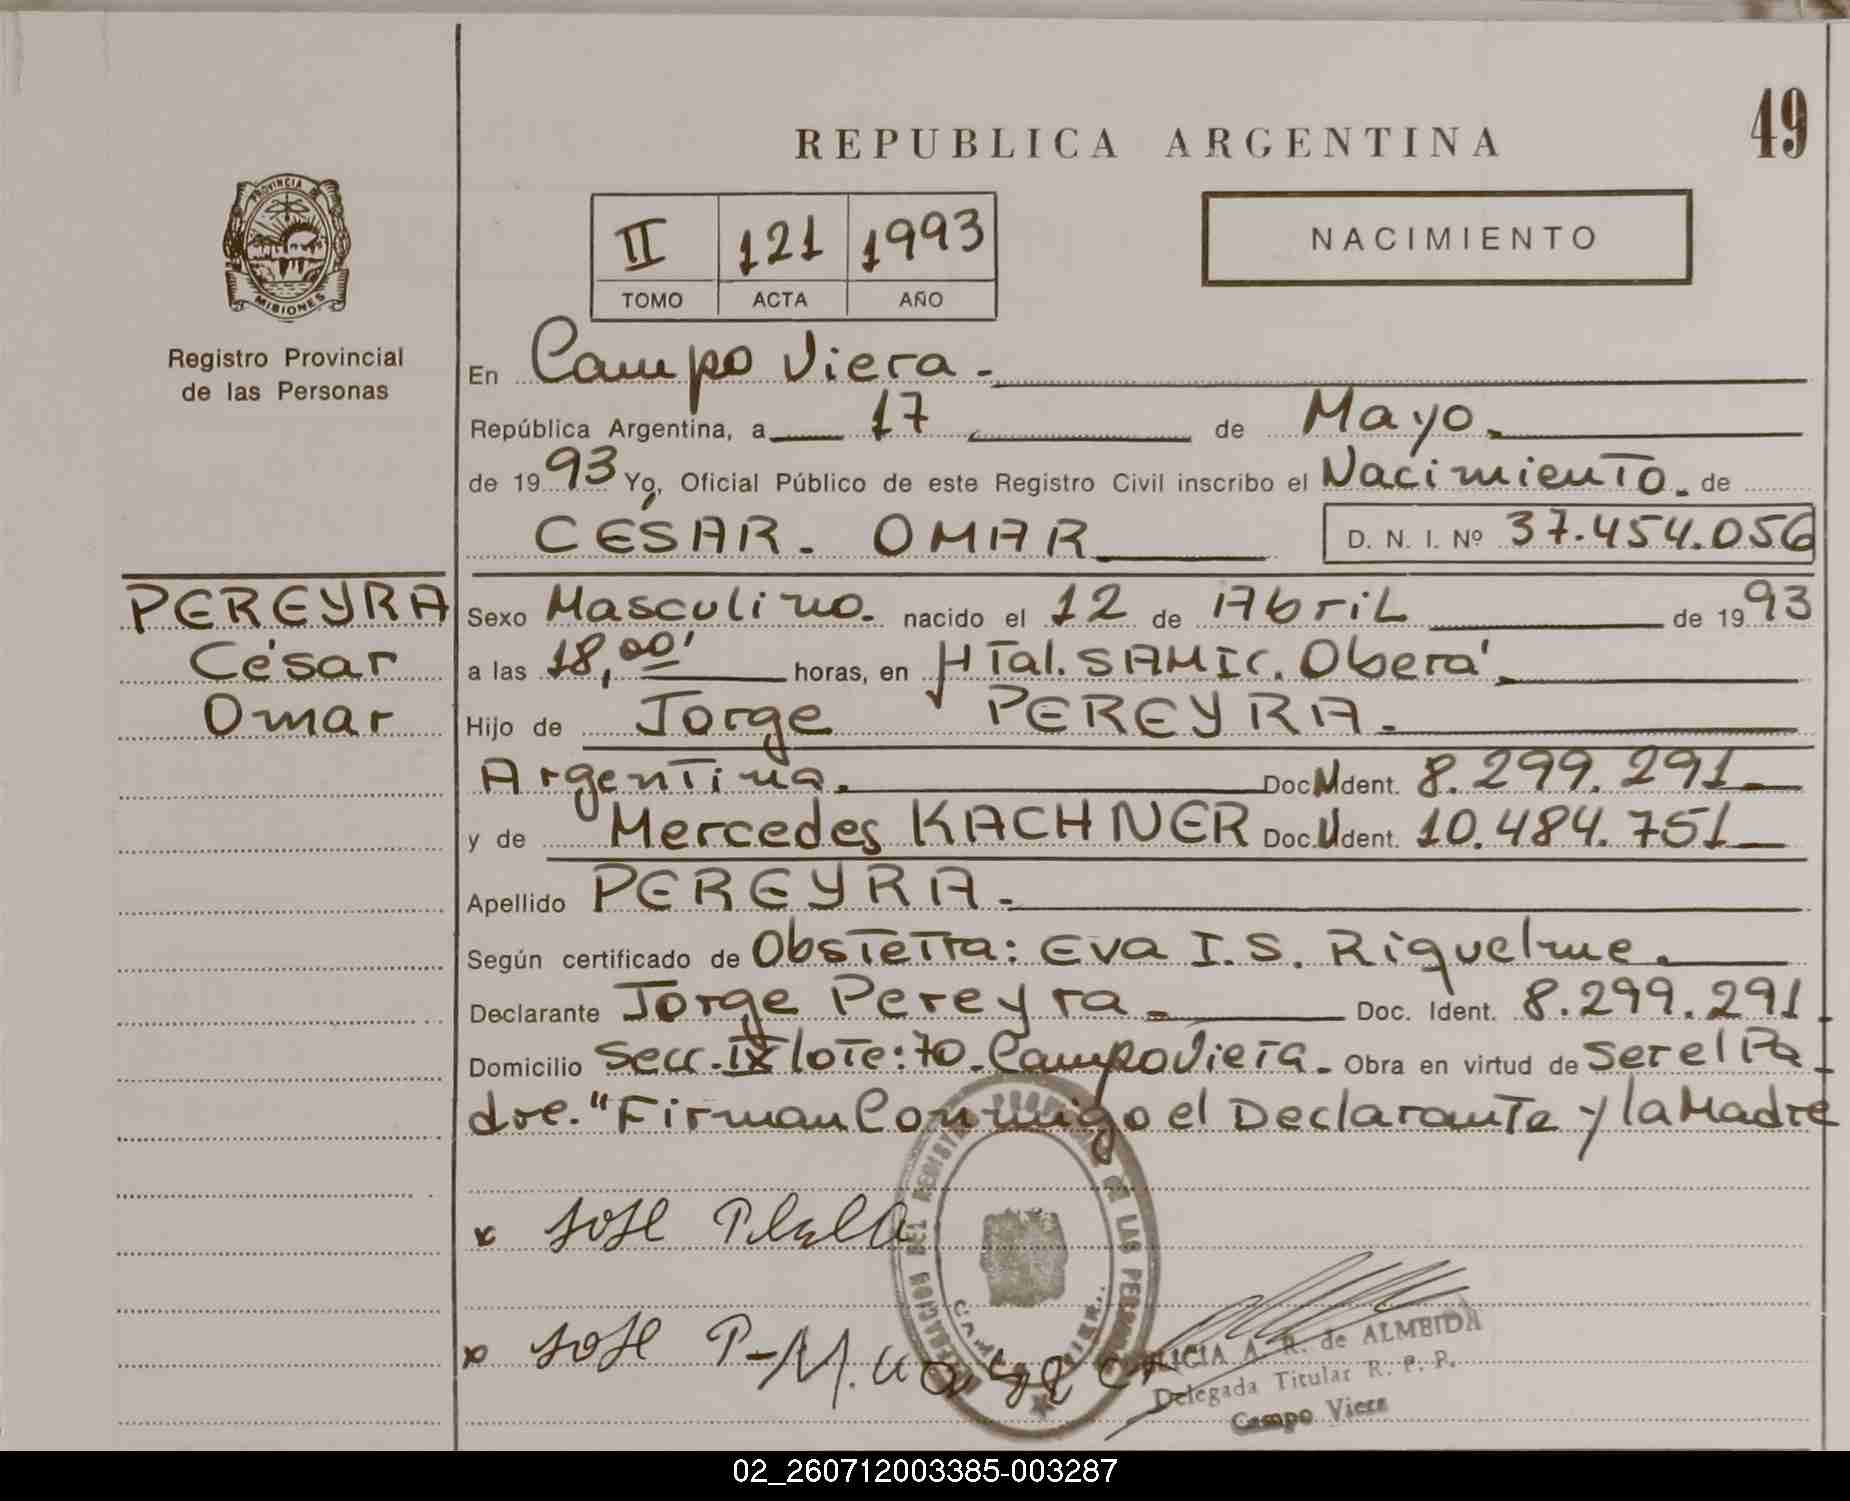 49
REPUBLICA ARGENTINA
PROVINCIA DE
MISIONES
II 121 1993
TOMO ACTA AÑO
NACIMIENTO
Registro Provincial
de las Personas
En Campo Viera.
República Argentina, a 17 de Mayo.
de 1993 Yo, Oficial Público de este Registro Civil inscribo el Nacimiento. de
CÉSAR. OMAR D. N. I. Nº 37.454.056
PEREYRA
César
Omar
Sexo Masculino. nacido el 12 de Abril de 1993
a las 18,00' horas, en HTal. SAMIC. Oberá.
Hijo de Jorge PEREYRA.
Argentina. Doc. Udent. 8.299.291
y de Mercedes KACHNER Doc. Udent. 10.484.751
Apellido PEREYRA.
Según certificado de Obstetra: Eva I. S. Riquelme.
Declarante Jorge Pereyra. Doc. Ident. 8.299.291.
Domicilio Secc. IX lote: 70. Campo Viera. Obra en virtud de ser el Pa-
dre. "Firman Conmigo el Declarante y la Madre
x
x
DEL REGISTRO PROVINCIAL DE LAS PERSONAS
A. R. de ALMEIDA
Delegada Titular R. P. P.
Campo Viera
02_260712003385-003287